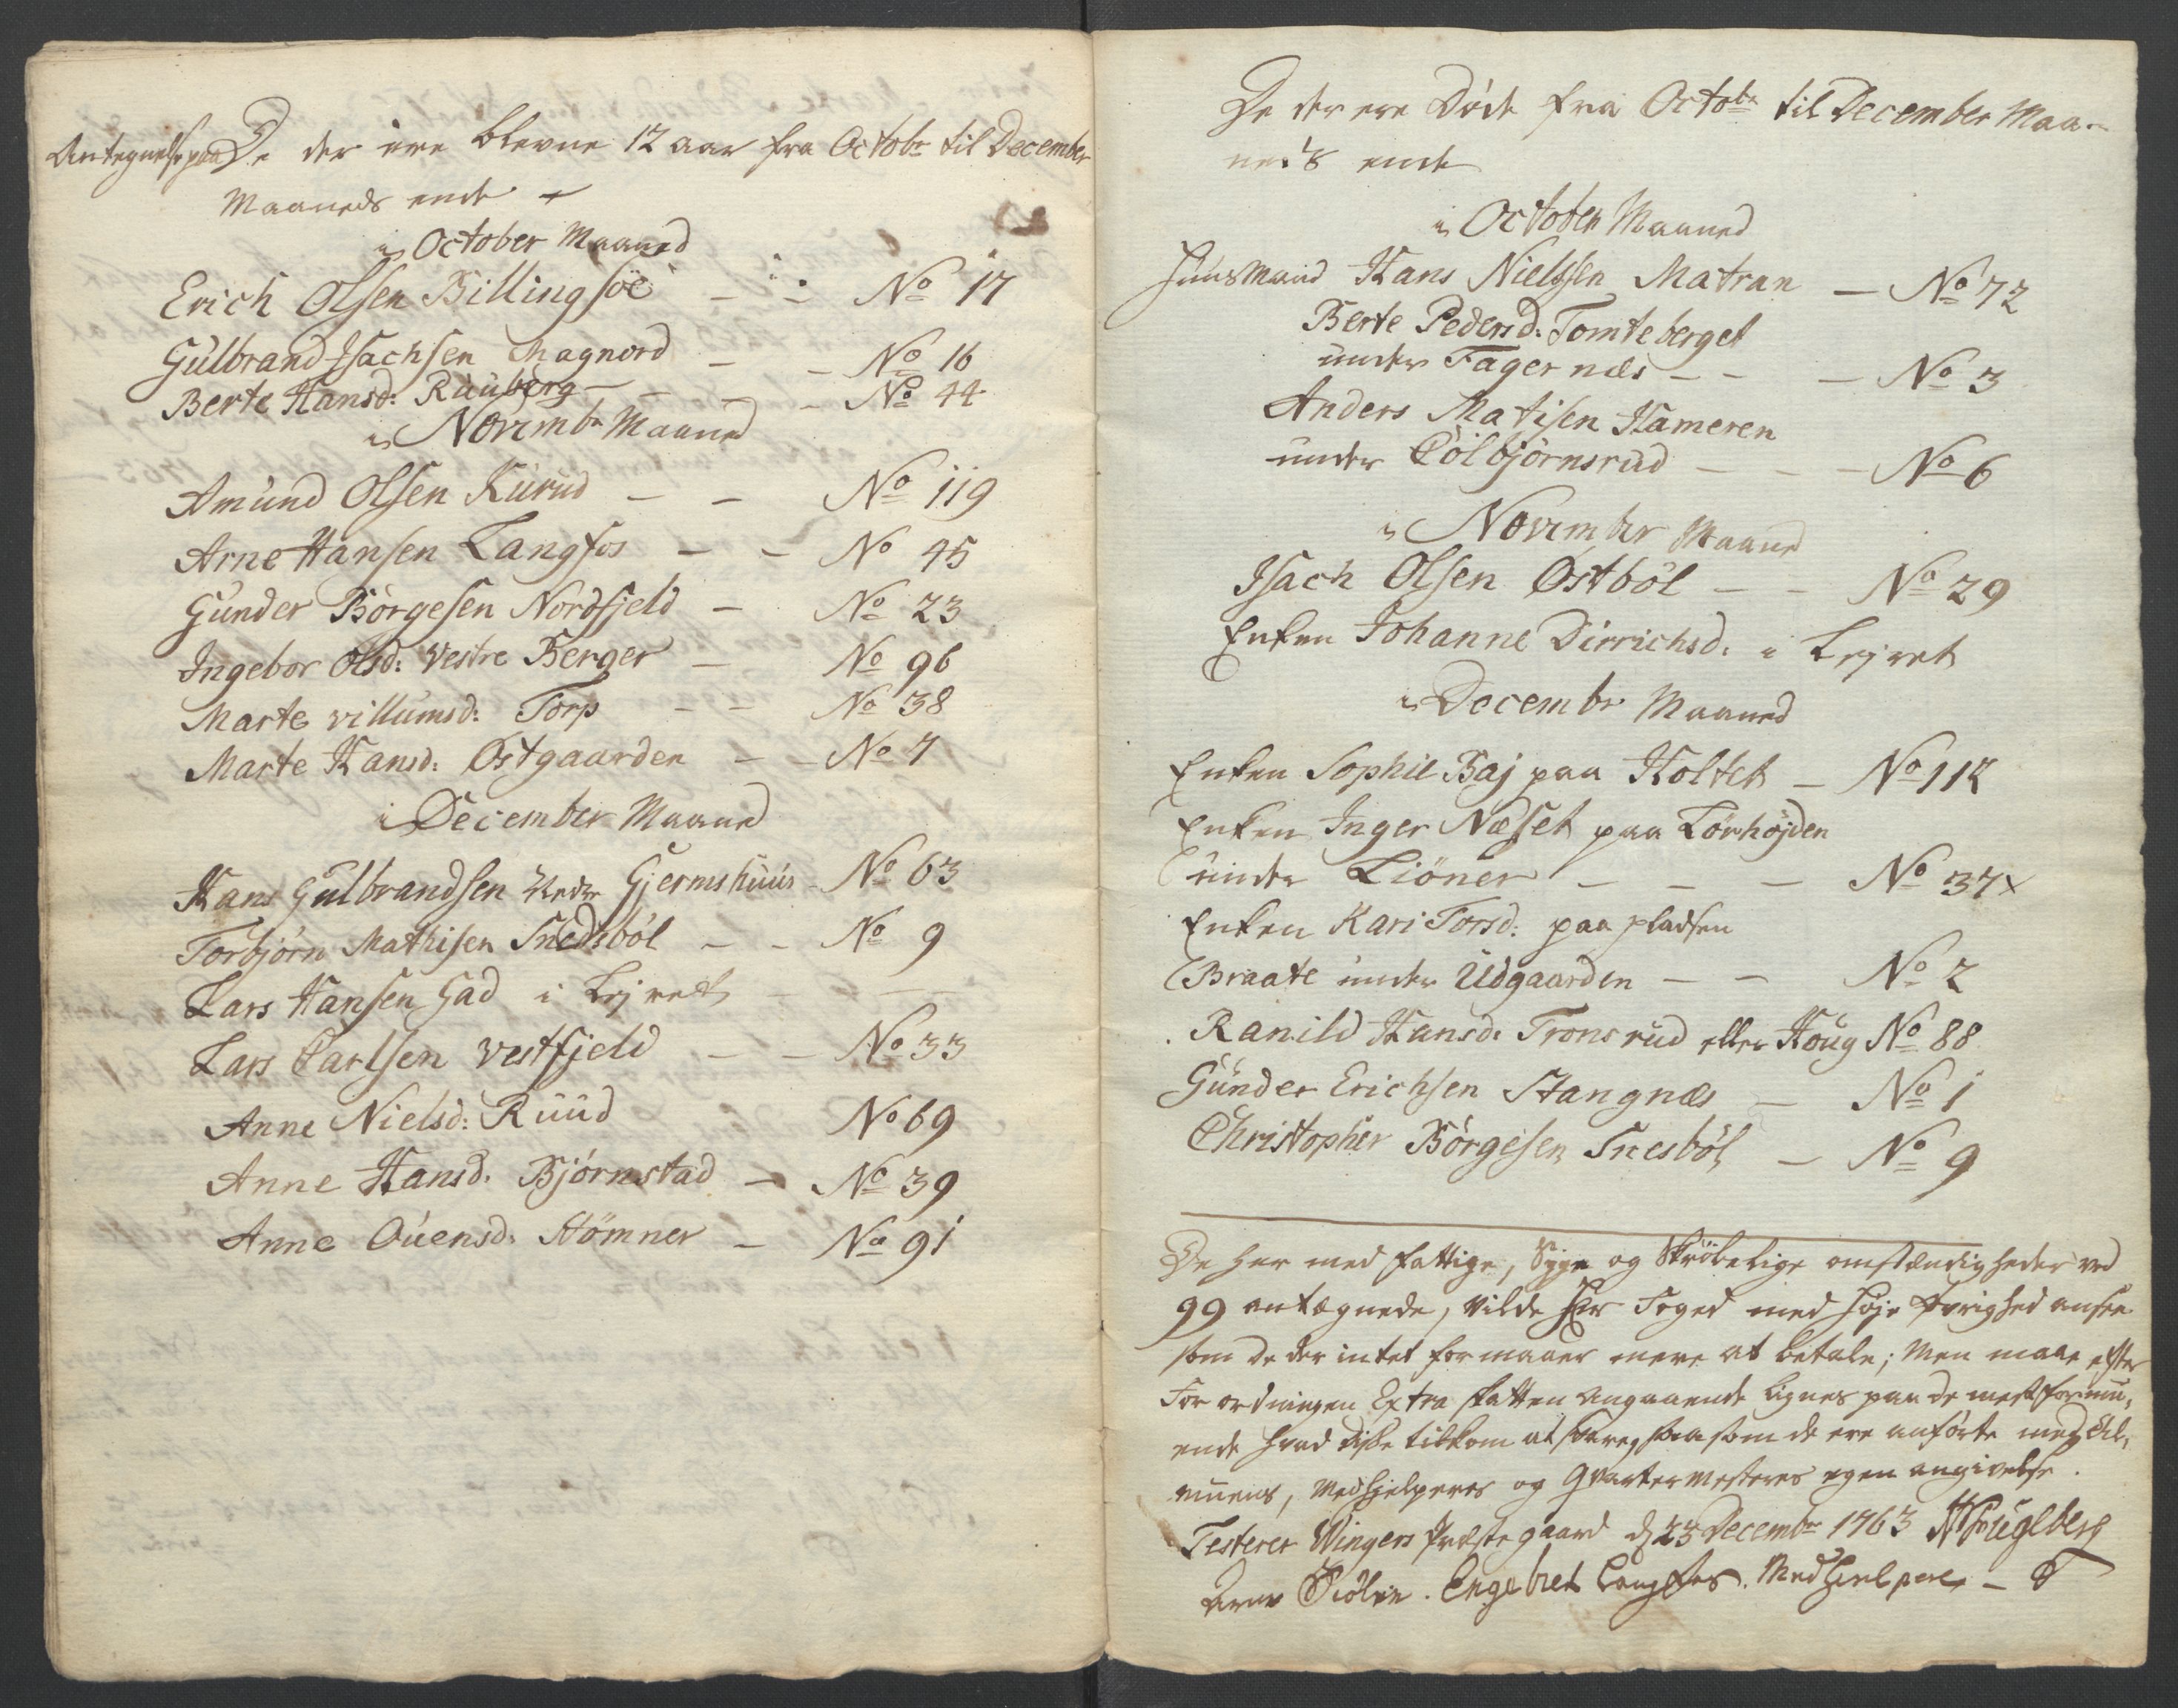 Antegnelse paa De der ere blevne 12 aar fra Octobr til December
Maaneds ende
i October Maaned
Erich Olsen Billingsöe - - No 17
Gulbrand Isachsen Magnord - - No 16
Berte Hansd: Rauberg - - - No 44
i Novembr Maaned
Amund Olsen Kurud - - No 119
Arne Hansen Langfos - - No 45
Gunder Börgesen Nordfjeld - No 23
Ingebor Olsd: Vestre Berger - No 96
Marte villumsd: Torp - - No 38
Marte Hansd: Østgaarden - - No 7
i December Maaned
Hans Gulbrandsen Nedre Gjermshuus - No 63
Torbjörn Mathisen Snedsböl - - No 9
Lars Hansen Gad i Lejret - - -
Lars Carlsen vestfjeld - - No 33
Anne Nielsd: Ruud No 69
Anne Hansd. Bjørnstad - No 39
Anne Ouensd. Hömner - No 91
De der ere Døde fra Octobr til December Maa-
neds ende
i October Maaned
Huusmand Hans Nielssen Matran - No 72
Berte Pedersd: Tomteberget
under Fagernæs - - - No 3
Anders Matisen Hameren
under Colbjörnsrud - - - No 6
i November Maaned
Isach Olsen Østböl - - No 29
Enken Johanne Dirrichsd. i Lejret
i Decembr Maaned
Enken Sophie Baj paa Holtet - No 112
Enken Inger Næset paa Lörhöjden
under Liöner - - - No 37x
Enken Kari Torsd: paa pladsen
Braate under Udgaarden - - No 2
Ranild Hansd: Tronsrud eller Houg No 88
Gunder Erichsen Stangnæs - No 1
Christopher Börgesen Snesböl - No 9
De her med fattige, Syge og Skröbelige omstændigheder ved
99 antegnede, vilde Hr Foged med høje Øvrighed ansee
som de der intet formaaer mere at betale; Men maae efter
Forordningen Extra skatten angaaende lignes paa de mest formu,
ende hvad disse tilkom at svare saasom de ere anförte med Al,
muens, Medhjelperes og Qvartermesteres egen angivelse.
Testerer Wingers Præstegaard d 23 Decembr 1763 Fuglberg
Arne Skölen. Engebret Langfos. Medhielpere -